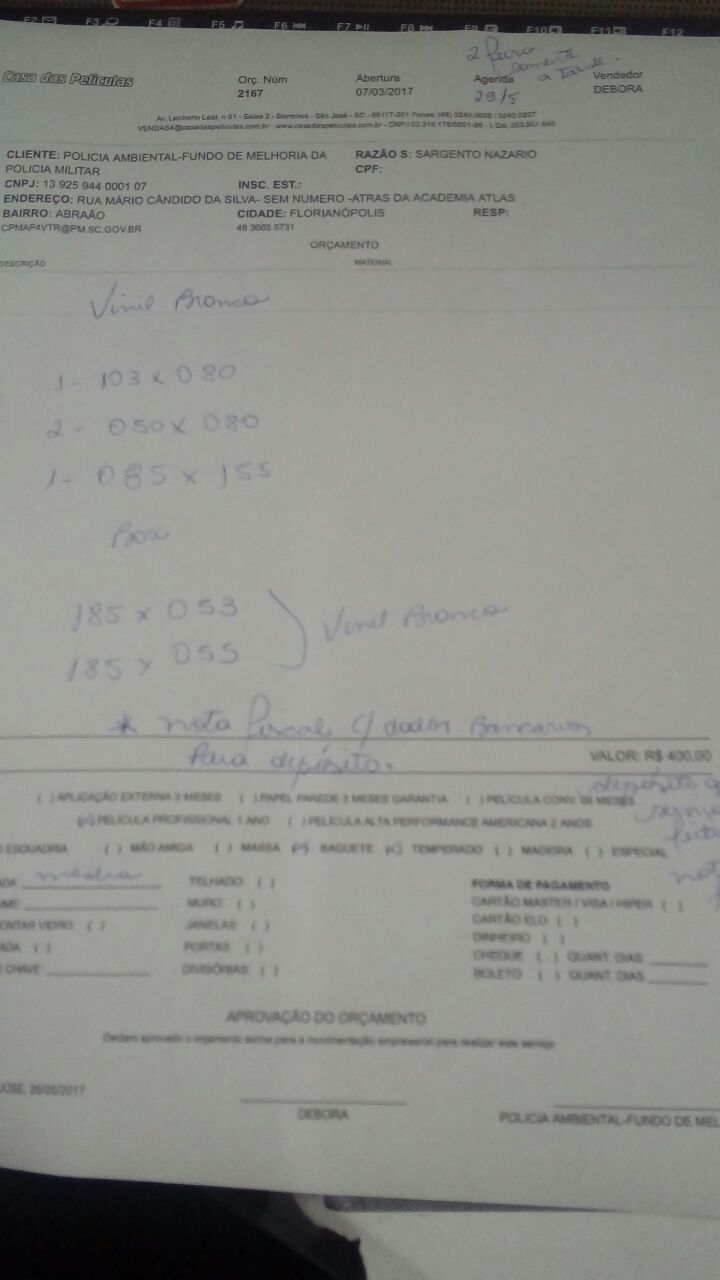 F2 F3 F4 F5 F6 F7 F8 F9 F10 F11 F12
2 feira
somente
a tarde.
Casa das Películas Orç. Núm Abertura Agenda Vendedor
2167 07/03/2017 29/5 DEBORA
Av. Leoberto Leal, n 01 - Salas 2 - Barreiros - São José - SC - 88117-001 Fones: (48) 3240.0605 / 3240.0207
CLIENTE: POLICIA AMBIENTAL-FUNDO DE MELHORIA DA RAZÃO S: SARGENTO NAZARIO
POLICIA MILITAR CPF:
CNPJ: 13 925 944 0001 07 INSC. EST.:
ENDEREÇO: RUA MÁRIO CÂNDIDO DA SILVA- SEM NUMERO -ATRAS DA ACADEMIA ATLAS
BAIRRO: ABRAÃO CIDADE: FLORIANÓPOLIS RESP:
CPMAP4VTR@PM.SC.GOV.BR 48 3665 5731
ORÇAMENTO
DESCRIÇÃO MATERIAL
Vinil Branco
1- 103 x 080
2- 050 x 080
1- 085 x 155
Box
185 x 053
185 x 055 Vinil Branco
* nota Fiscal c/ dados Bancarios
Para depósito. VALOR: R$ 400,00
depósito
( ) APLICAÇÃO EXTERNA 3 MESES ( ) PAPEL PAREDE 3 MESES GARANTIA ( ) PELÍCULA CONV. 06 MESES
(x) PELÍCULA PROFISSIONAL 1 ANO ( ) PELÍCULA ALTA PERFORMANCE AMERICANA 2 ANOS
ESQUADRIA ( ) MÃO AMIGA ( ) MASSA (x) BAGUETE (x) TEMPERADO ( ) MADEIRA ( ) ESPECIAL
ADA média TELHADO ( ) FORMA DE PAGAMENTO
UME MURO ( ) CARTÃO MASTER / VISA / HIPER ( )
ONTAR VIDRO ( ) JANELAS ( ) CARTÃO ELO ( )
ADA ( ) PORTAS ( ) DINHEIRO ( )
E CHAVE: DIVISÓRIAS ( ) CHEQUE ( ) QUANT. DIAS
BOLETO ( ) QUANT. DIAS
APROVAÇÃO DO ORÇAMENTO
Declaro aprovado o orçamento acima para a movimentação empresarial para realizar este serviço
JOSÉ, 26/05/2017
DEBORA POLICIA AMBIENTAL-FUNDO DE MEL